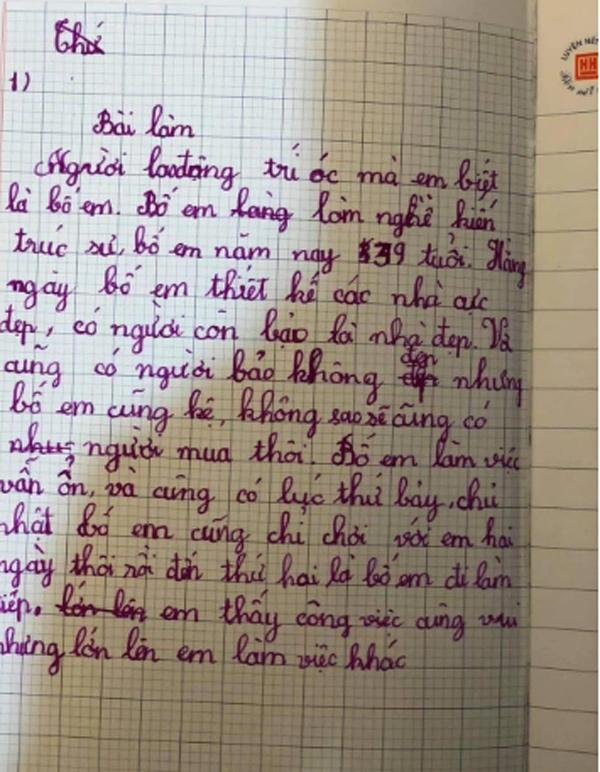 Thứ
1)
Bài làm
Người lao động trí óc mà em biết
là bố em. Bố em làng làm nghề kiến
trúc sư, bố em năm nay 39 tuổi. Hằng
ngày bố em thiết kế các nhà cực
đẹp, có người còn bảo là nhà đẹp. Và
cũng có người bảo không đẹp nhưng
bố em cũng kệ, không sao sẽ cũng có
người mua thôi. Bố em làm việc
vẫn ổn, và cũng có lúc thứ bảy, chủ
nhật bố em cũng chỉ chơi với em hai
ngày thôi rồi đến thứ hai là bố em đi làm
tiếp. lớn lên em thấy công việc cũng vui
nhưng lớn lên em làm việc khác
LUYỆN
HH